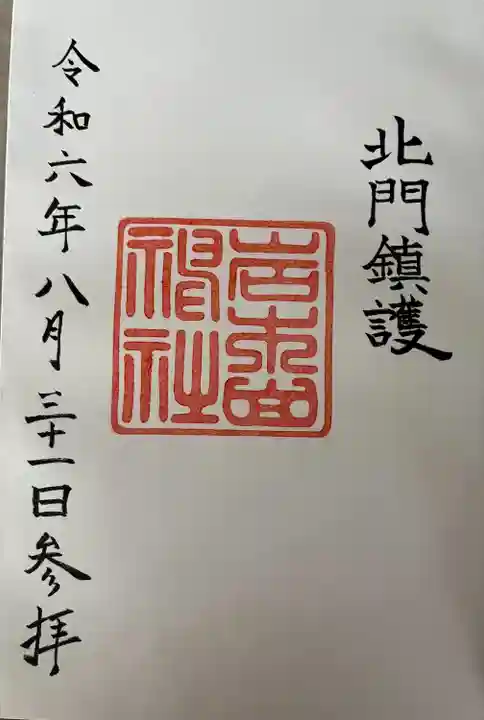 北門鎮護
岩木山
神社
令和六年八月三十一日参拝